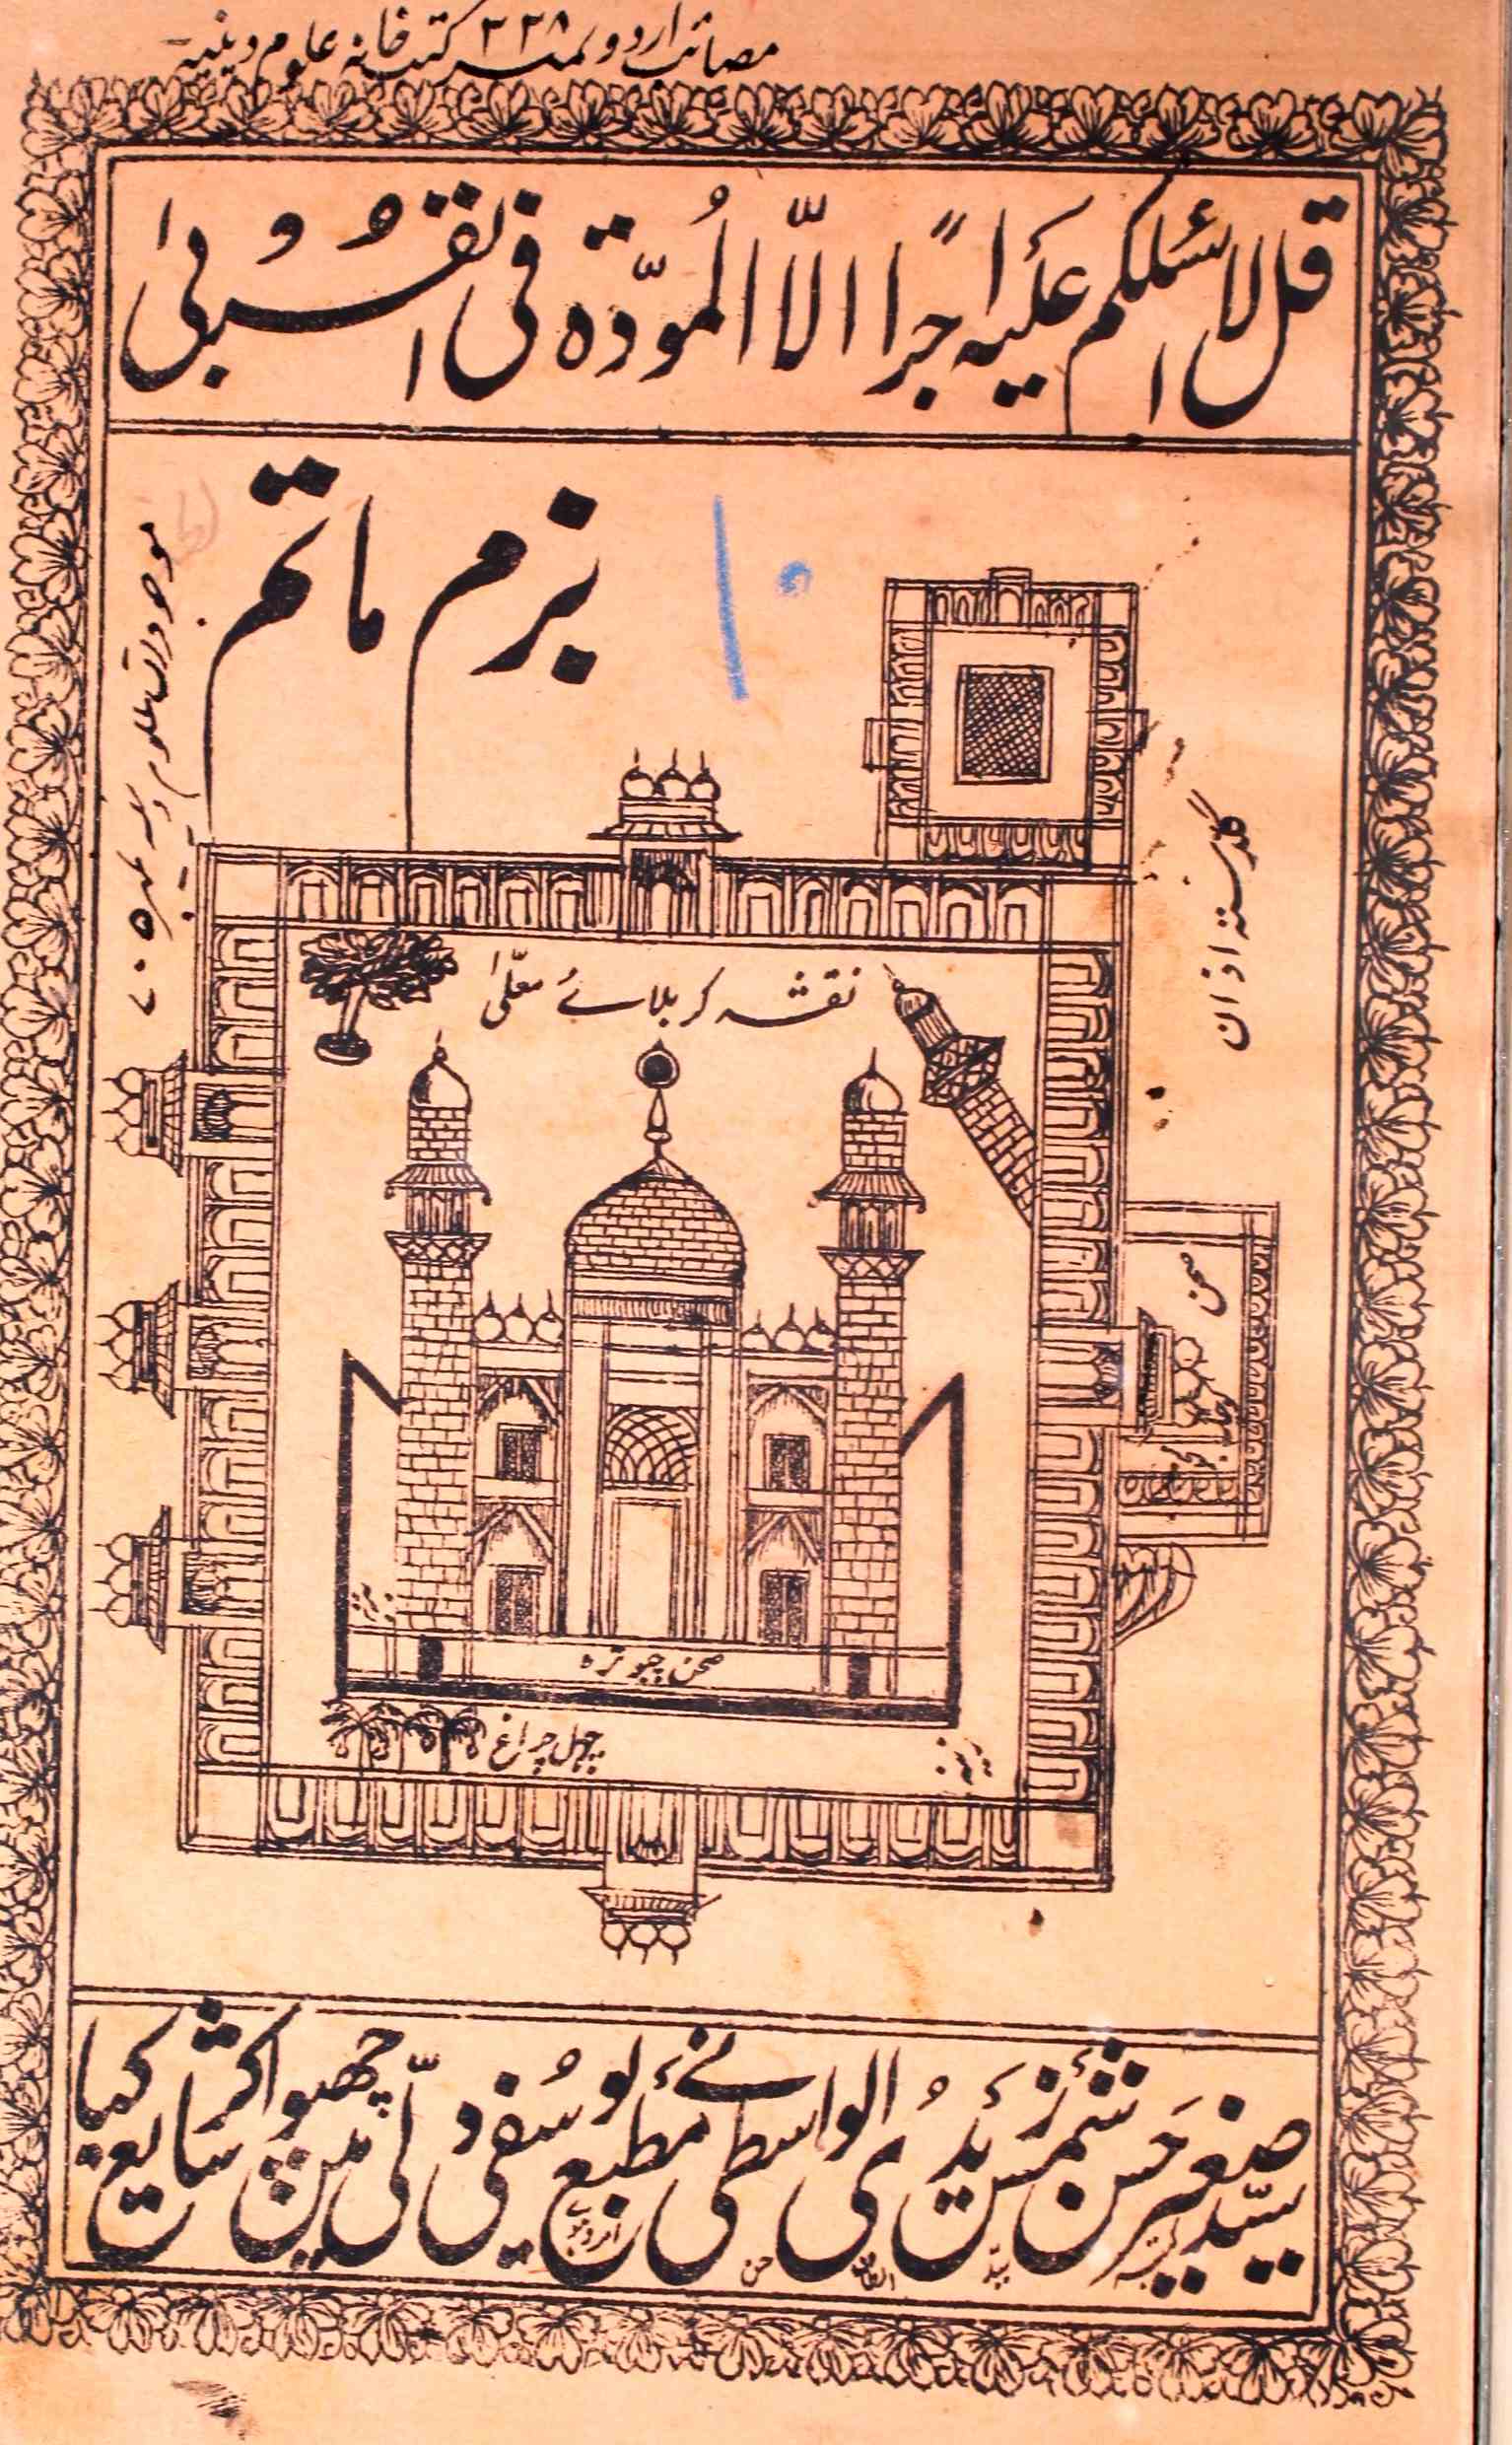 مصائب اردو نمبر ۳۳۸ کتب خانہ علوم دینیہ
قل لا اسئلکم علیہ اجرًا الّا المُودّة فی القُربیٰ
بزم ماتم
۱۰
گلدستہ اذان
نقشہ کربلائے معلّیٰ
صحن
صحن چبوترہ
چہل چراغ
سیّد صغیر حَسن شمسؔ زَیدُی الواسطی نے مطبع یوسُفی دہلّی میں چھپواکر شایع کیا